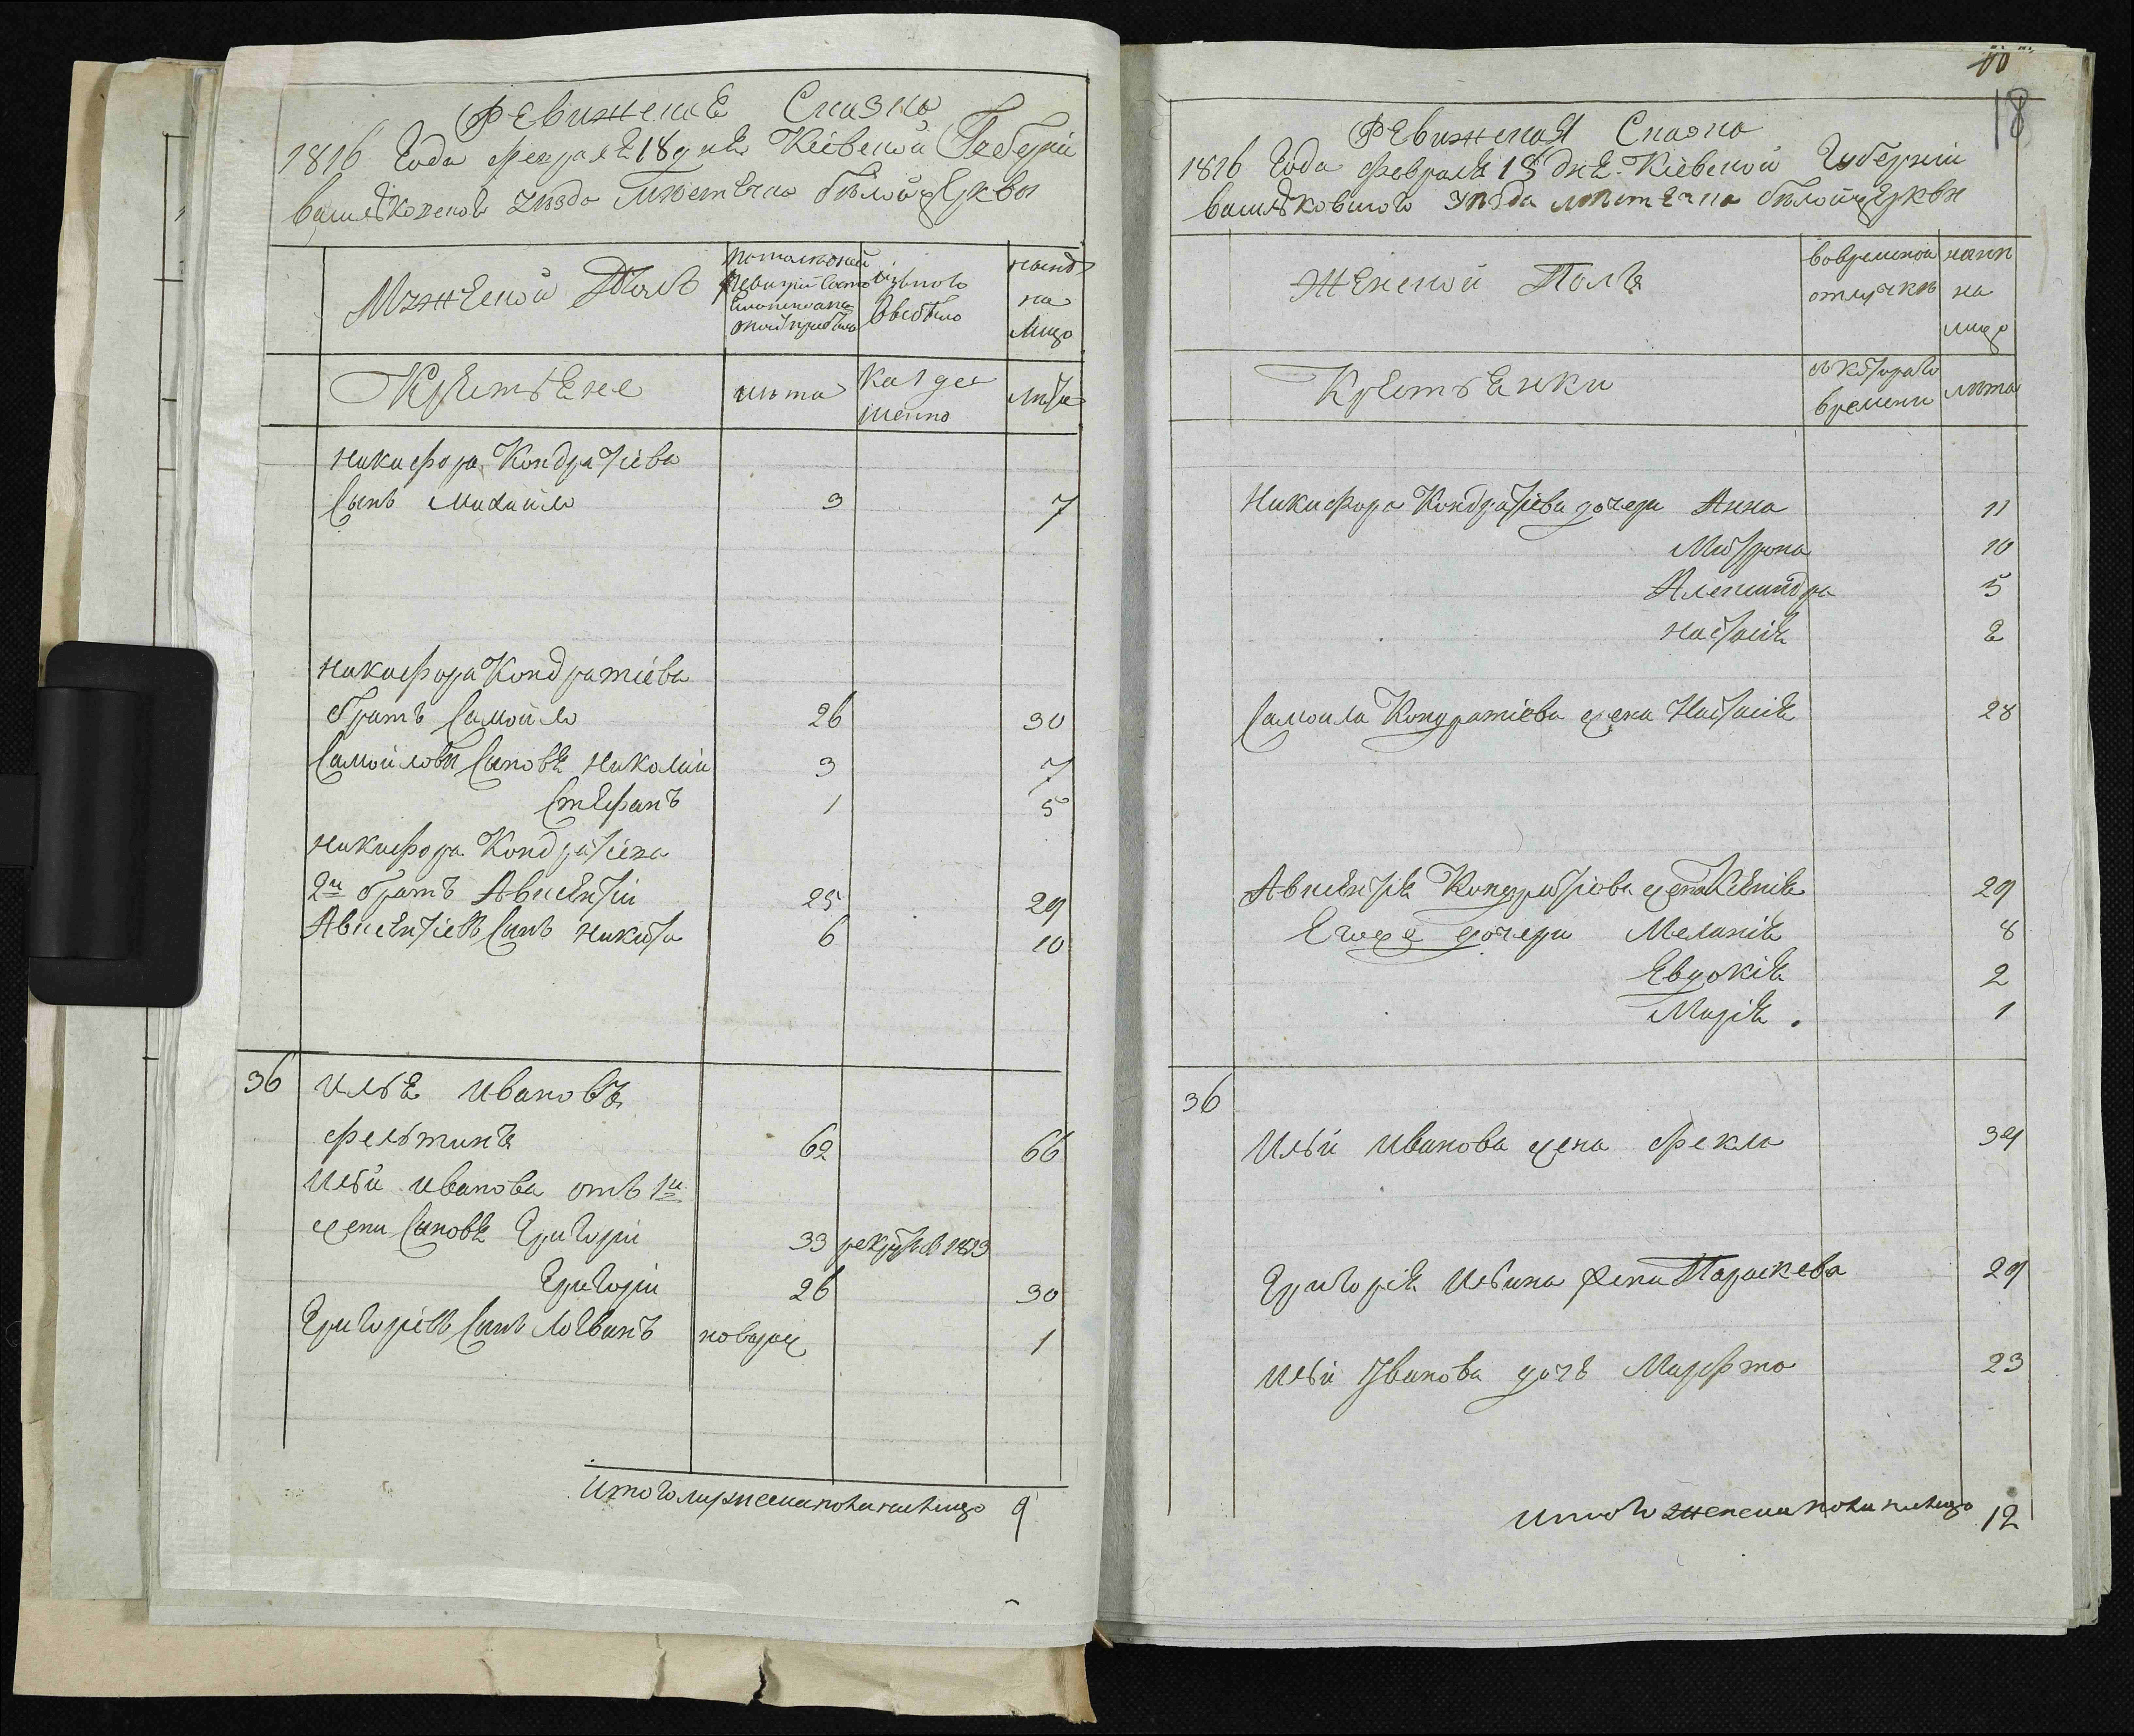 Ревижская Сказка
1816 года февраля 18 дня Кіевской Губерніи
васильковского уезда местечка белой церкви
Мужеской Полъ
по последней
ревизіи состо
яло и после
оной прибыло
изъ того
выбыло
ныне
на
лицо
Крестьяне
лета
когда
именно
лета
Никифора Кондратіева
Сынъ Михайло 3 7
Никифора Кондратіева
братъ Самойло 26 30
Самойловы Сыновя Николай 3 7
Стефанъ 1 5
Никифора Кондратіева
2й братъ Авксентій 25 29
Авксентіевъ Сынъ Никита 6 10
36 Илья Ивановъ
фельтинъ 62 66
Ильи Иванова отъ 1й
жены Сыновя Григорій 33 рекрутъ в 1813
Григорій 26 30
Григоріевъ Сынъ Логвинъ новорож 1
Итого мужеска пола налицо 9
18
Ревижская Сказка
1816 года февраля 18 дня Кіевской Губерніи
васильковского уезда местечка белой церкви
Женской Полъ
во временной
отлучке
ныне
на
лицо
Крестьянки
съ котораго
времени
лета
Никифора Кондратіева дочери Анна 11
Мотрона 10
Александра 5
Настасія 2
Самоила Кондратіева жена Настасія 28
Авксентія Кондратіева жена Ксенія 29
Егожъ дочери Меланія 8
Евдокія 2
Марія 1
36
Ильи Иванова жена Фекла 34
Григорія Ильина жена Параскева 29
Ильи Иванова дочь Марфта 23
Итого женска пола налицо 12